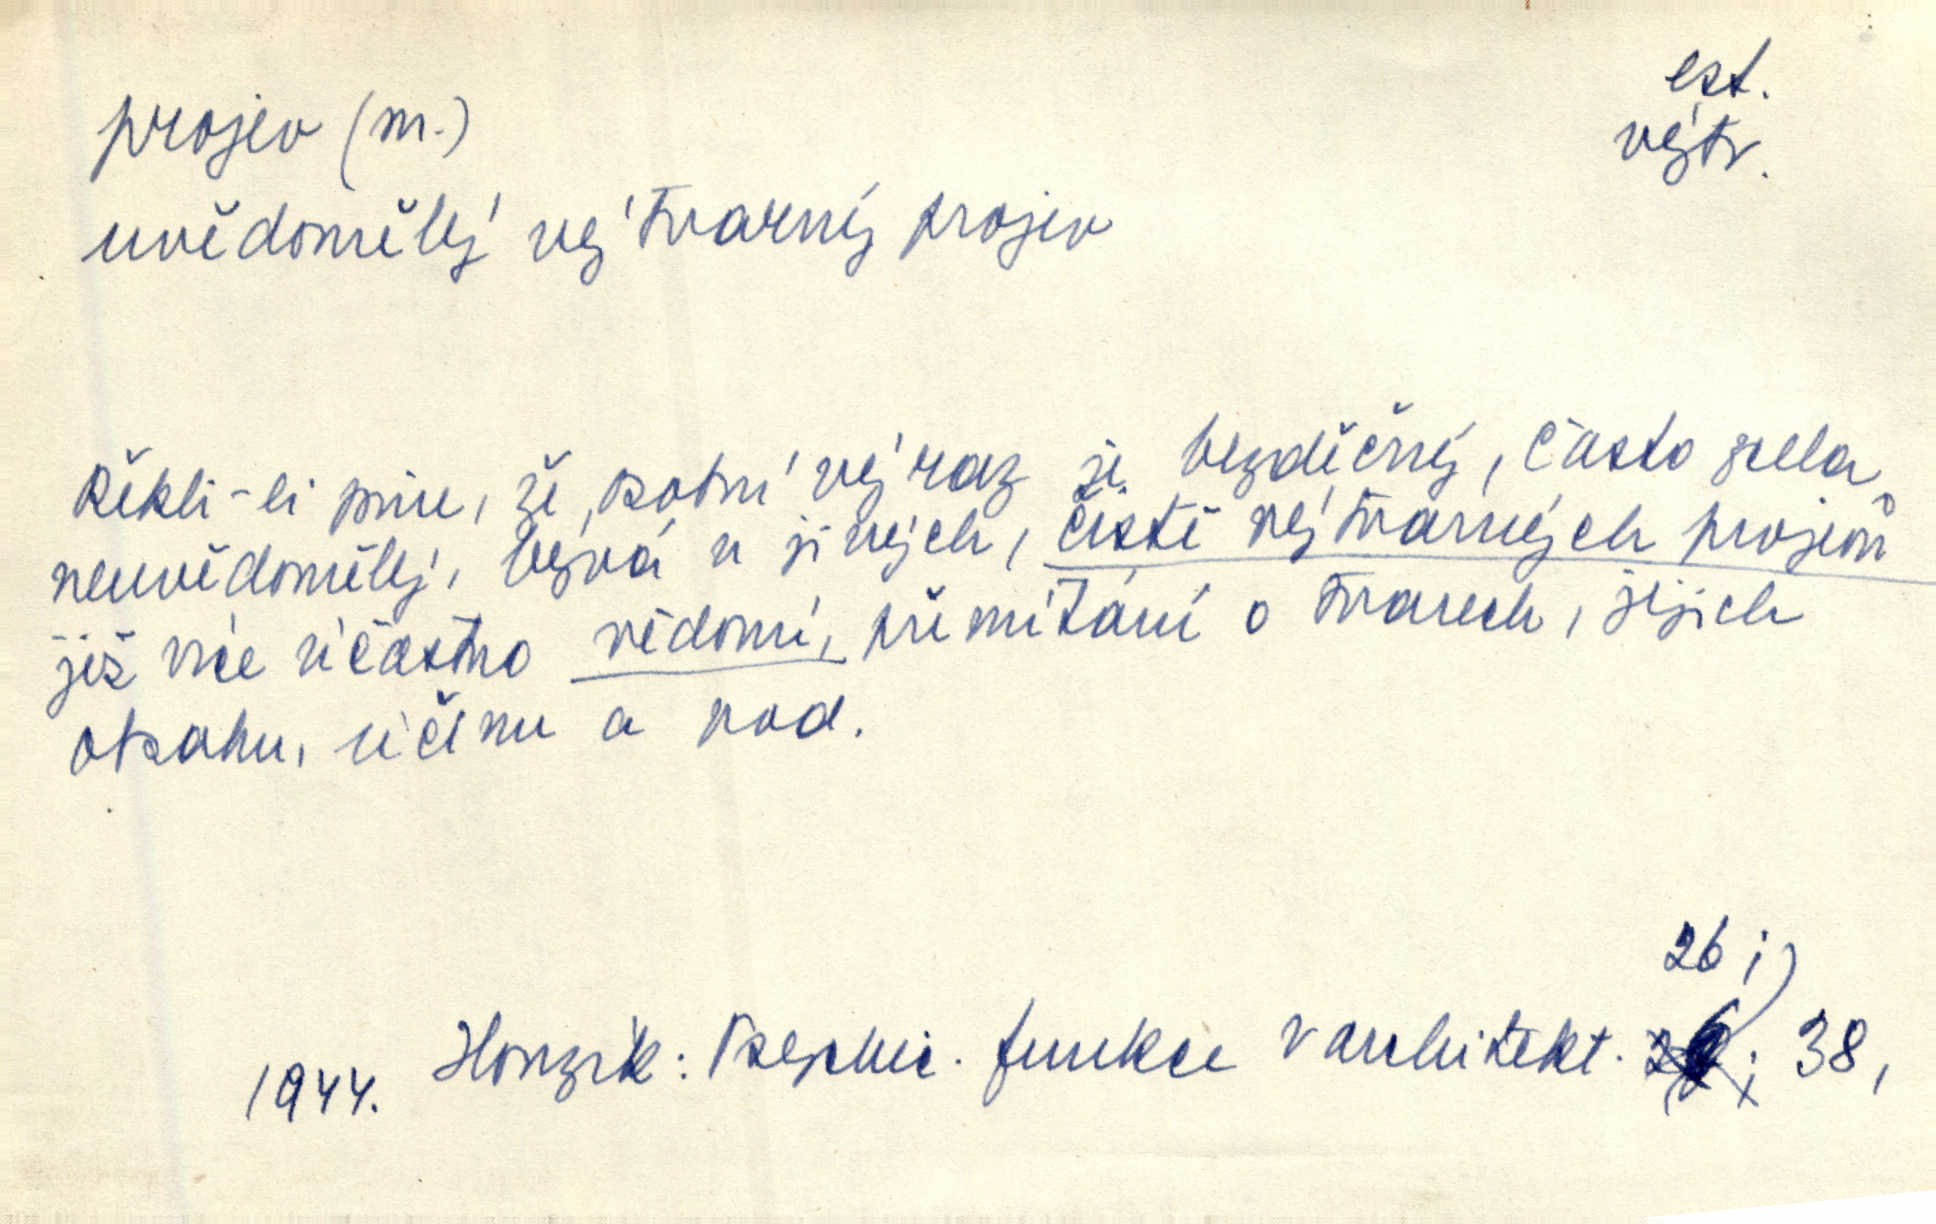 est.
výtv.
projev (m.)
uvědomělý výtvarný projev
Řekli-li jsme, že osobní výraz je bezděčný, často zcela
neuvědomělý, bývá u jiných, čistě výtvarných projevů
již více účastno vědomí, přemítání o tvarech, jejich
obsahu, účinu a pod.
26;
1944. Honzík: Psychic. funkce v architekt. 38,